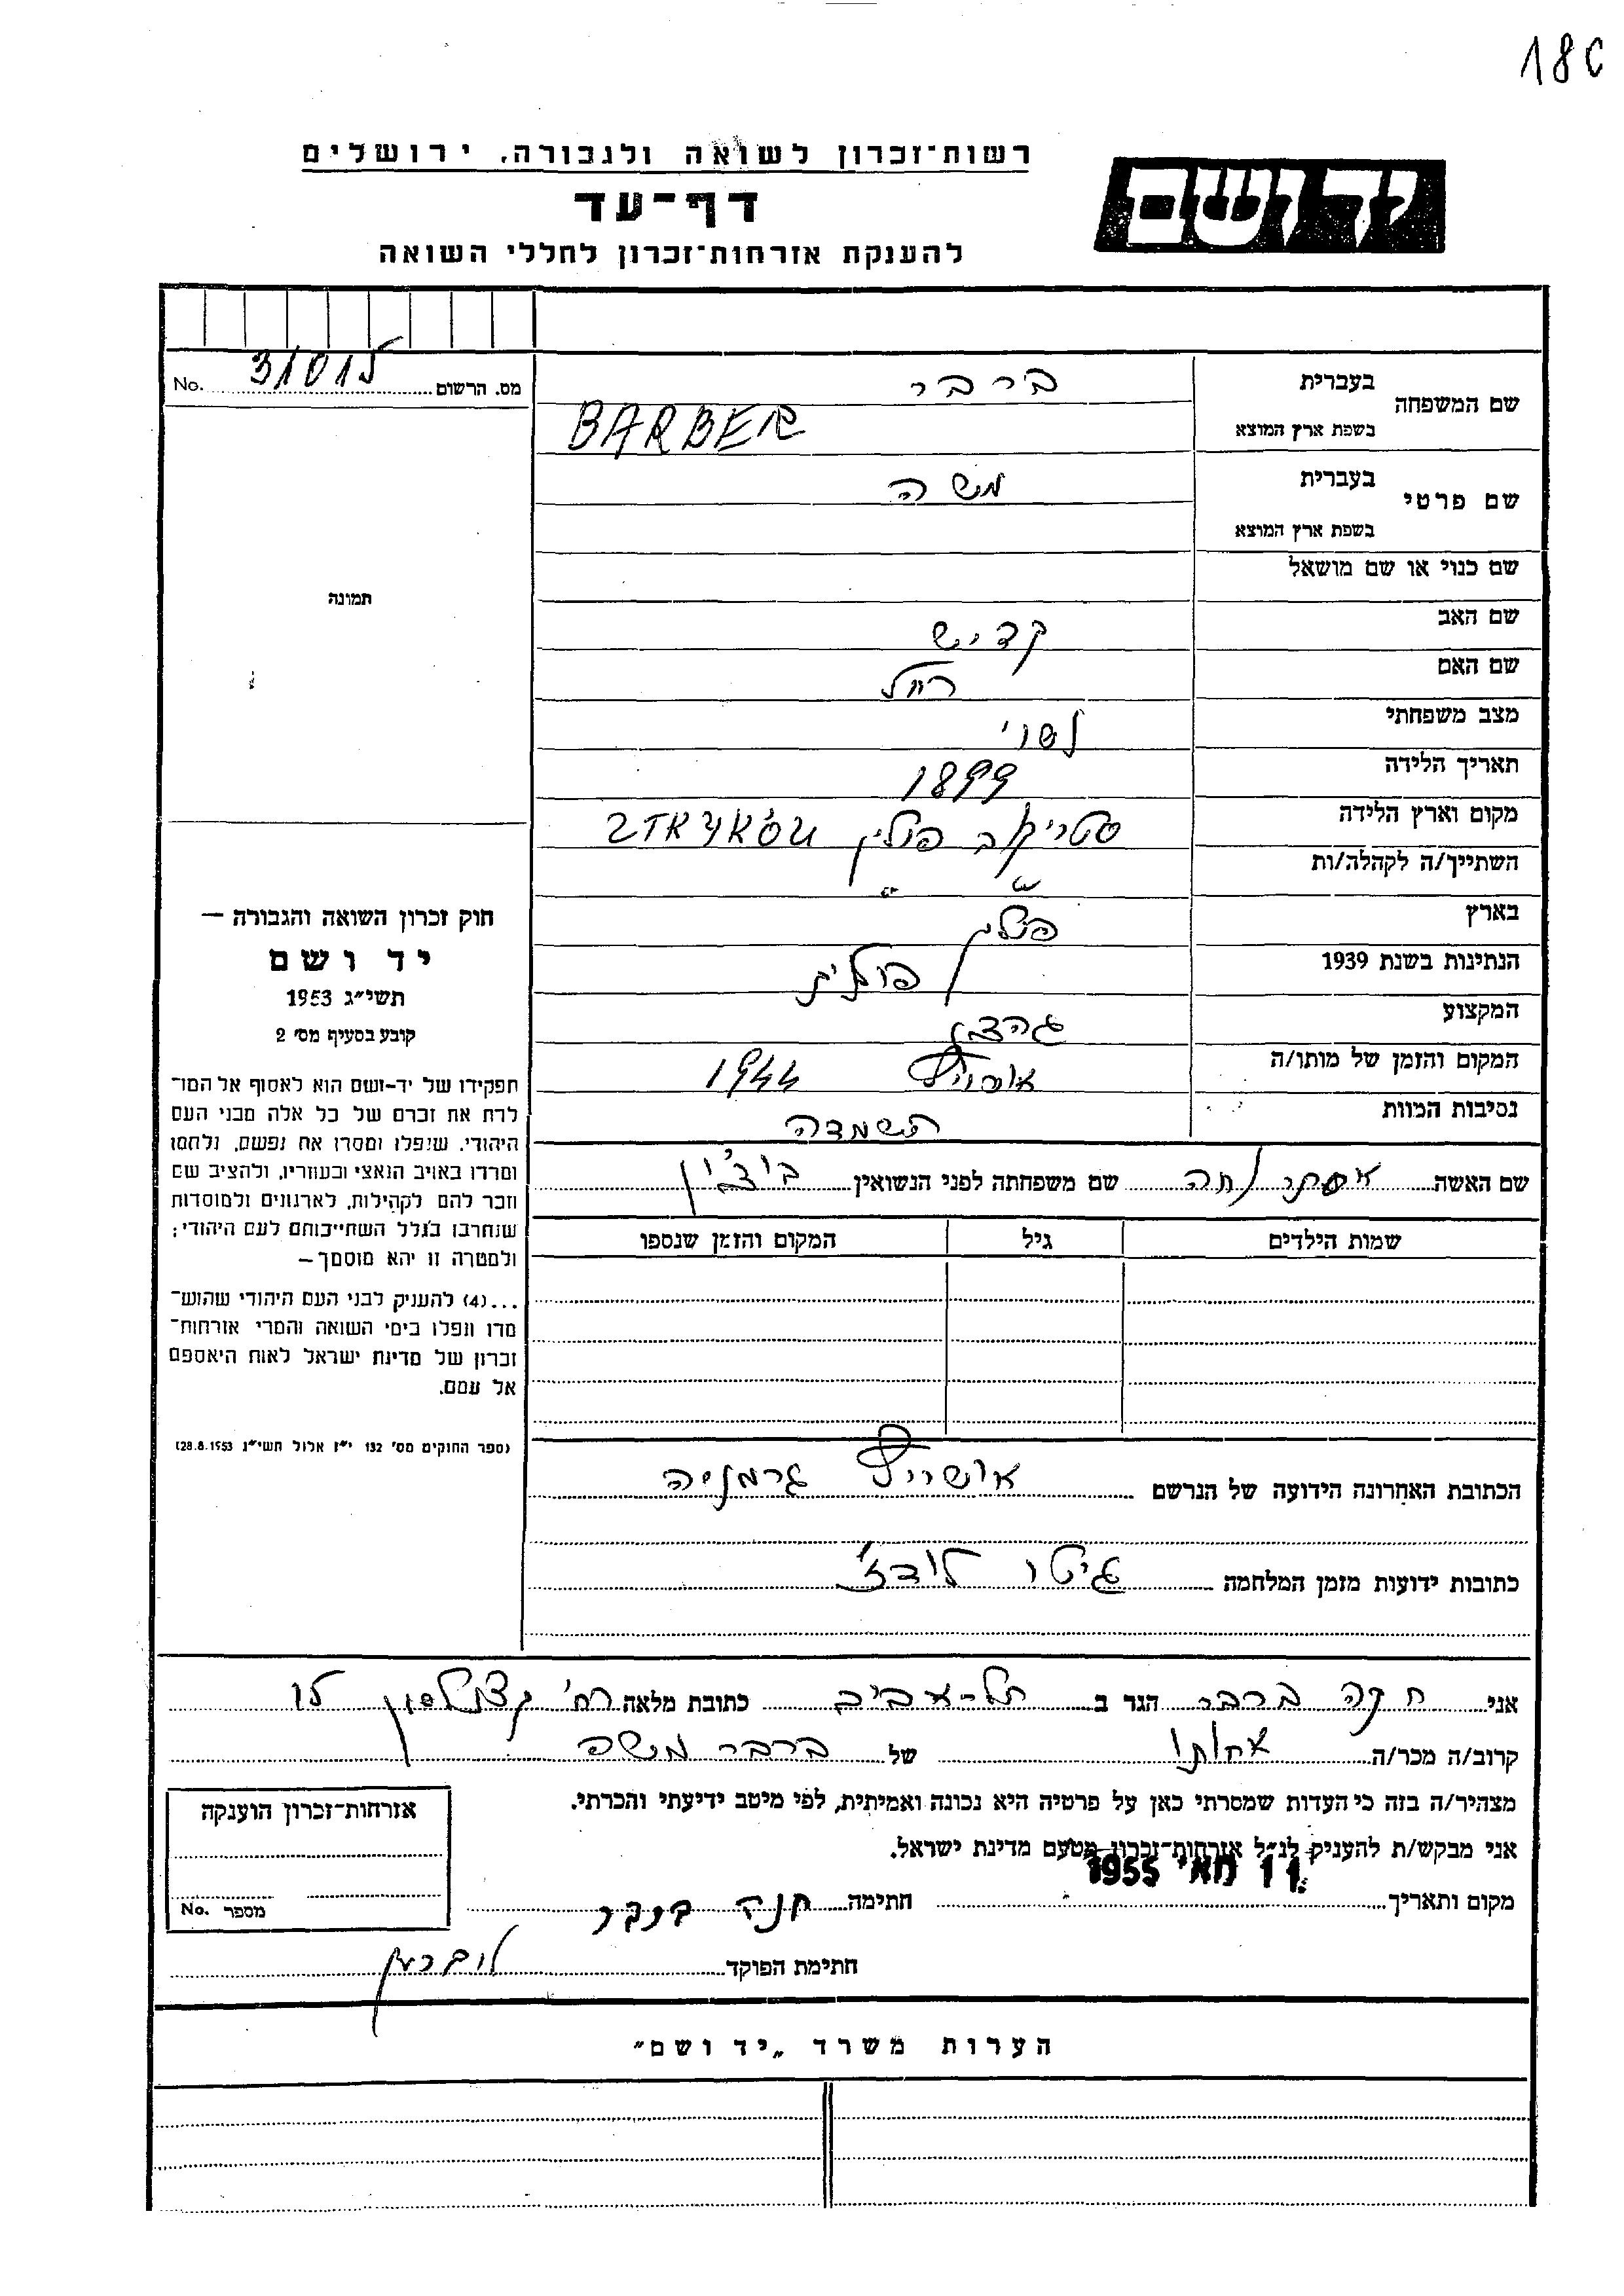 18c
רשות־זכרון לשואה ולגבורה, ירושלים
יד ושם
דף־עד
להענקת אזרחות־זכרון לחללי השואה
מס. הרשום No.
שם המשפחה
בעברית ברבר
בשפת ארץ המוצא BARBER
שם פרטי
בעברית משה
בשפת ארץ המוצא
שם כנוי או שם מושאל
תמונה
שם האב קדיש
שם האם רחל
מצב משפחתי נשוי
תאריך הלידה 1899
מקום וארץ הלידה סטריקוב פולין
השתייך/ה לקהלה/ות " "
בארץ פולין
הנתינות בשנת 1939 פולנית
המקצוע
המקום והזמן של מותו/ה 1944
נסיבות המוות השמדה
שם האשה אסתר שם משפחתה לפני הנשואין
שמות הילדים גיל המקום והזמן שנספו
חוק זכרון השואה והגבורה —
יד ושם
תשי״ג 1953
קובע בסעיף מס׳ 2
תפקידו של יד-ושם הוא לאסוף אל המו־
לדת את זכרם של כל אלה מבני העם
היהודי, שנפלו ומסרו את נפשם, נלחמו
ומרדו באויב הנאצי ובעוזריו, ולהציב שם
וזכר להם לקהילות, לארגונים ולמוסדות
שנחרבו בגלל השתייכותם לעם היהודי;
ולמטרה זו יהא מוסמך —
...(4) להעניק לבני העם היהודי שהוש־
מדו ונפלו בימי השואה והמרי אזרחות־
זכרון של מדינת ישראל לאות היאספם
אל עמם.
(ספר החוקים מס׳ 132 י״ז אלול תשי״ג 28.8.1953)
הכתובת האחרונה הידועה של הנרשם אושויץ גרמניה
כתובות ידועות מזמן המלחמה גיטו לודז׳
אני חנה ברבר הגר ב תל-אביב כתובת מלאה רח׳ קצנלסון
קרוב/ה מכר/ה אחותו של ברבר משה
מצהיר/ה בזה כי העדות שמסרתי כאן על פרטיה היא נכונה ואמיתית, לפי מיטב ידיעתי והכרתי.
אני מבקש/ת להעניק לנ״ל אזרחות־זכרון מטעם מדינת ישראל.
מקום ותאריך 11 מאי 1955 חתימה חנה ברבר
חתימת הפוקד
אזרחות־זכרון הוענקה
מספר No.
הערות משרד „יד ושם״